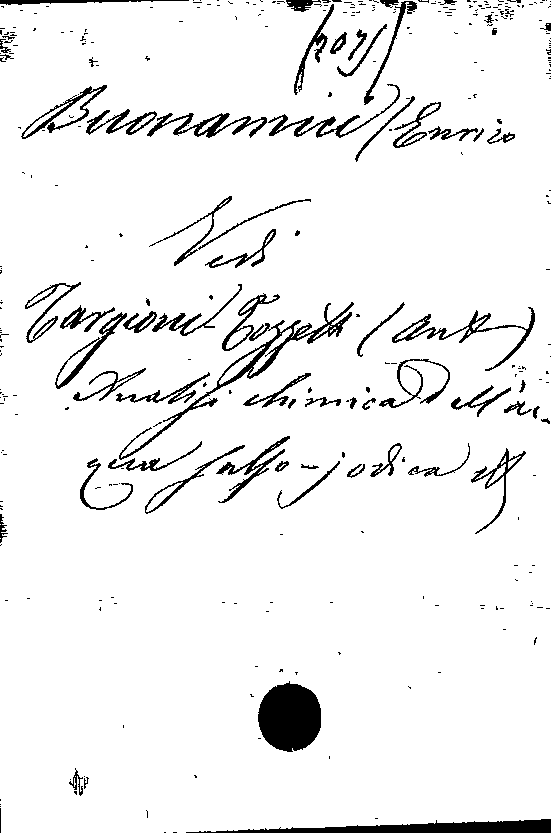 (207s)
Buonamici / Enrico
Vedi
Targioni Tozzetti (Ant)
Analisi chimica dell'ac-
qua salso-jodica